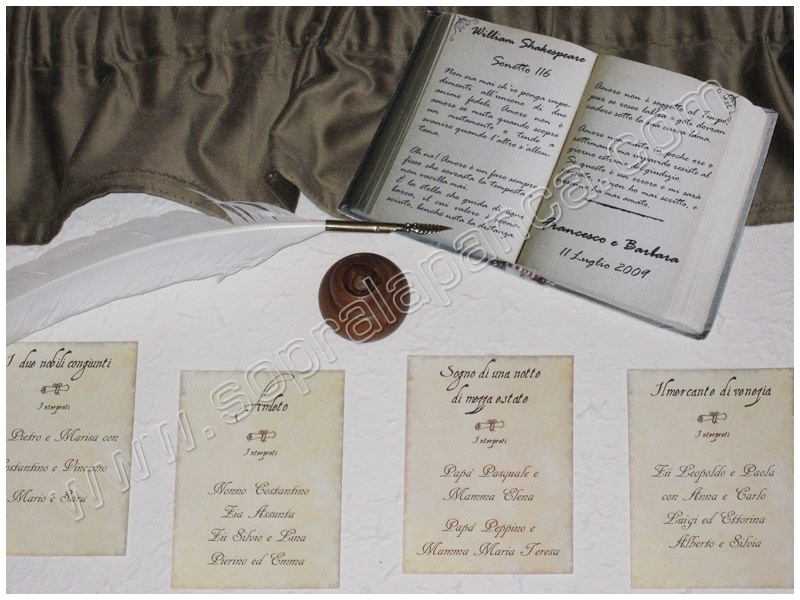 William Shakespeare
Sonetto 116
Non sia mai ch'io ponga impe
dimenti all'unione di due
anime fedeli. Amore non è
amore se muta quando scopre
un mutamento o tende a
svanire quando l'altro s'allon
tana.
Oh no! Amore è un faro sempre
fisso che sovrasta la tempesta
e non vacilla mai.
È la stella che guida di ogni
barca, il cui valore è scono
sciuto, benché nota la distanza.
Amore non è soggetto al Tempo,
pur se rosee labbra e gote dovran
cadere sotto la sua curva lama.
Amore non muta in poche ore o
settimane ma impavido resiste al
giorno estremo del giudizio.
Se questo è un errore e mi sarà
provato, io non ho mai scritto, e
nessuno ha mai amato.
Francesco e Barbara
11 Luglio 2009
I due nobili congiunti
Interpreti
Pietro e Marisa con
Costantino e Vincenzo
Mario e Sara
Amleto
Interpreti
Nonno Costantino
Zia Assunta
Zii Silvio e Lina
Pierino ed Emma
Sogno di una notte
di mezza estate
Interpreti
Papà Pasquale e
Mamma Elena
Papà Peppino e
Mamma Maria Teresa
Il mercante di venezia
Interpreti
Zii Leopoldo e Paola
con Anna e Carlo
Luigi ed Ettorina
Alberto e Silvia
www.sopralapanca.com